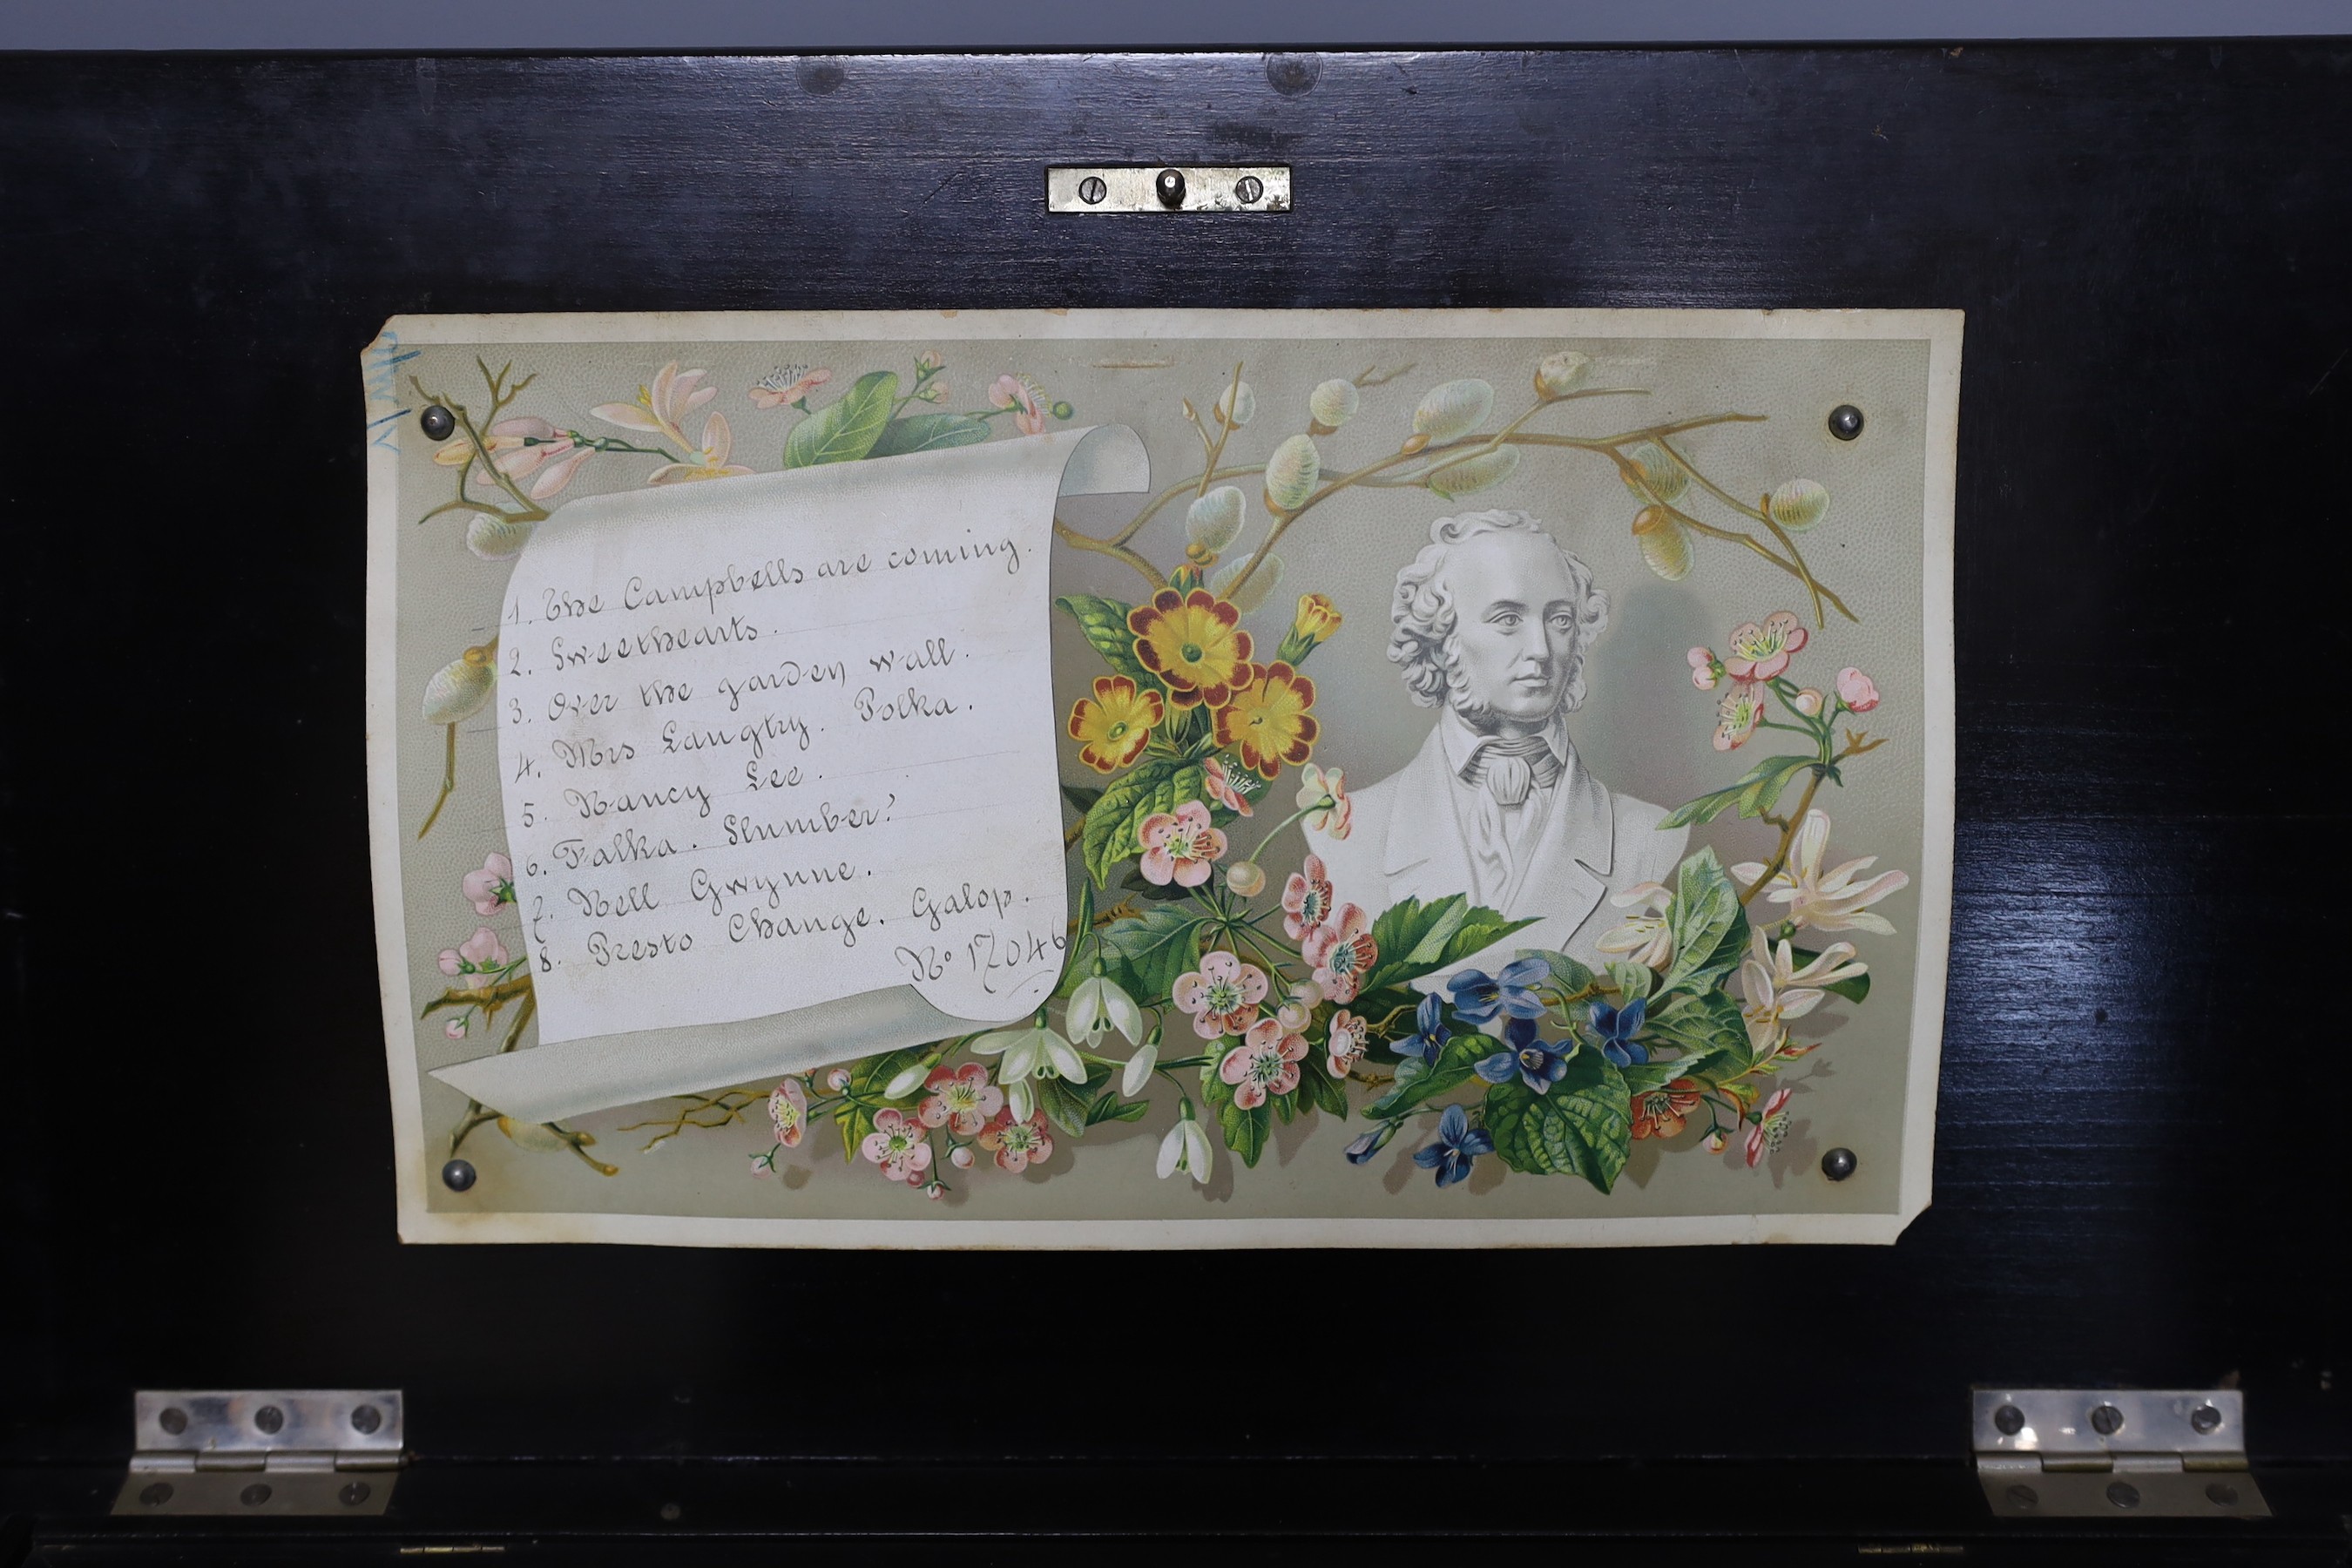 1. The Campbells are coming.
2. Sweethearts.
3. Over the garden wall.
4. Mrs Langtry. Polka.
5. Nancy Lee.
6. Falka. Slumber!
7. Nell Gwynne.
8. Presto Change. Galop.
No 17046